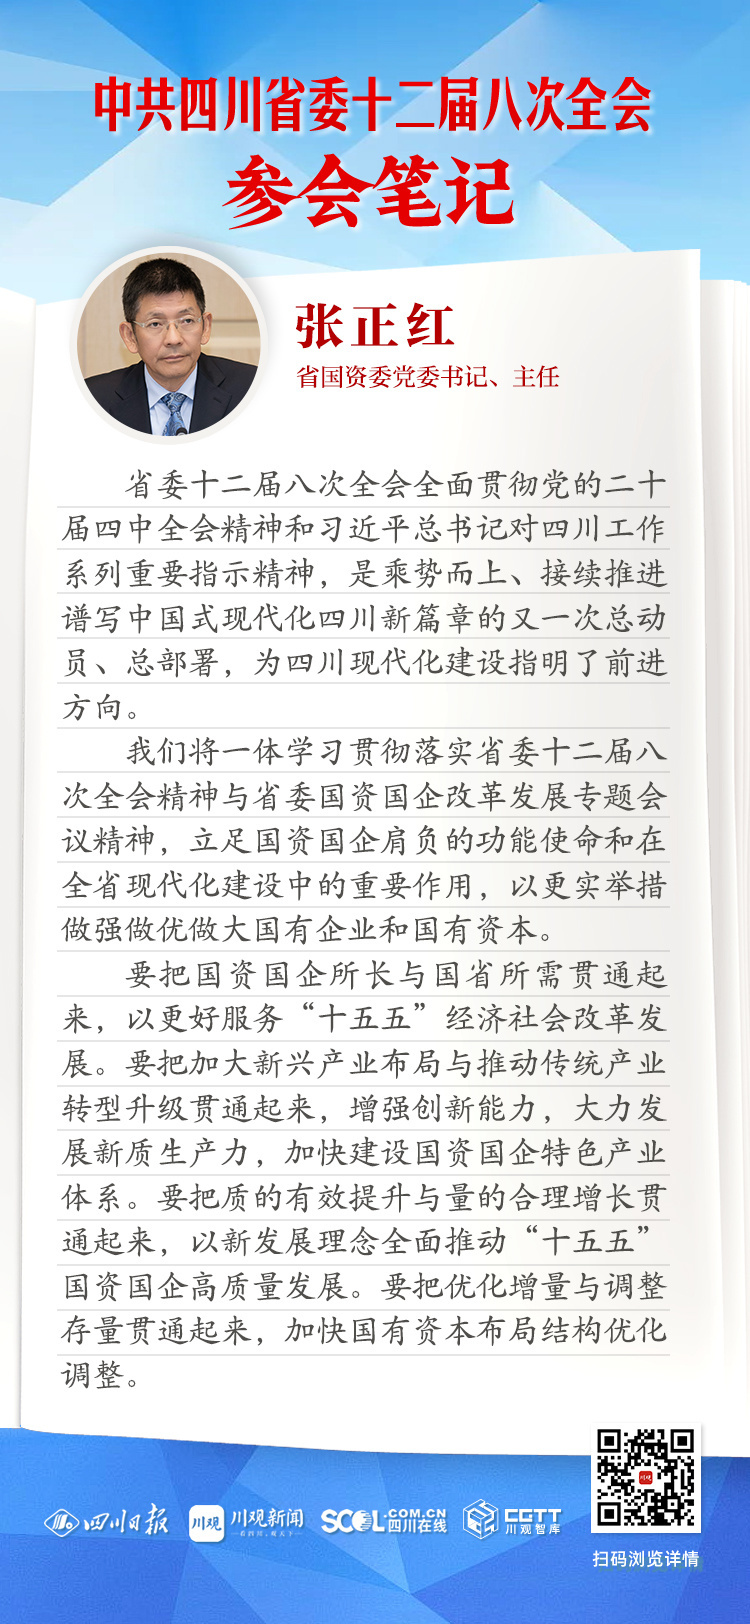 中共四川省委十二届八次全会
参会笔记
张正红
省国资委党委书记、主任
省委十二届八次全会全面贯彻党的二十
届四中全会精神和习近平总书记对四川工作
系列重要指示精神，是乘势而上、接续推进
谱写中国式现代化四川新篇章的又一次总动
员、总部署，为四川现代化建设指明了前进
方向。
我们将一体学习贯彻落实省委十二届八
次全会精神与省委国资国企改革发展专题会
议精神，立足国资国企肩负的功能使命和在
全省现代化建设中的重要作用，以更实举措
做强做优做大国有企业和国有资本。
要把国资国企所长与国省所需贯通起
来，以更好服务“十五五”经济社会改革发
展。要把加大新兴产业布局与推动传统产业
转型升级贯通起来，增强创新能力，大力发
展新质生产力，加快建设国资国企特色产业
体系。要把质的有效提升与量的合理增长贯
通起来，以新发展理念全面推动“十五五”
国资国企高质量发展。要把优化增量与调整
存量贯通起来，加快国有资本布局结构优化
调整。
四川日报
川观
川观新闻
SCOL.COM.CN
四川在线
CGTT
川观智库
川观
扫码浏览详情